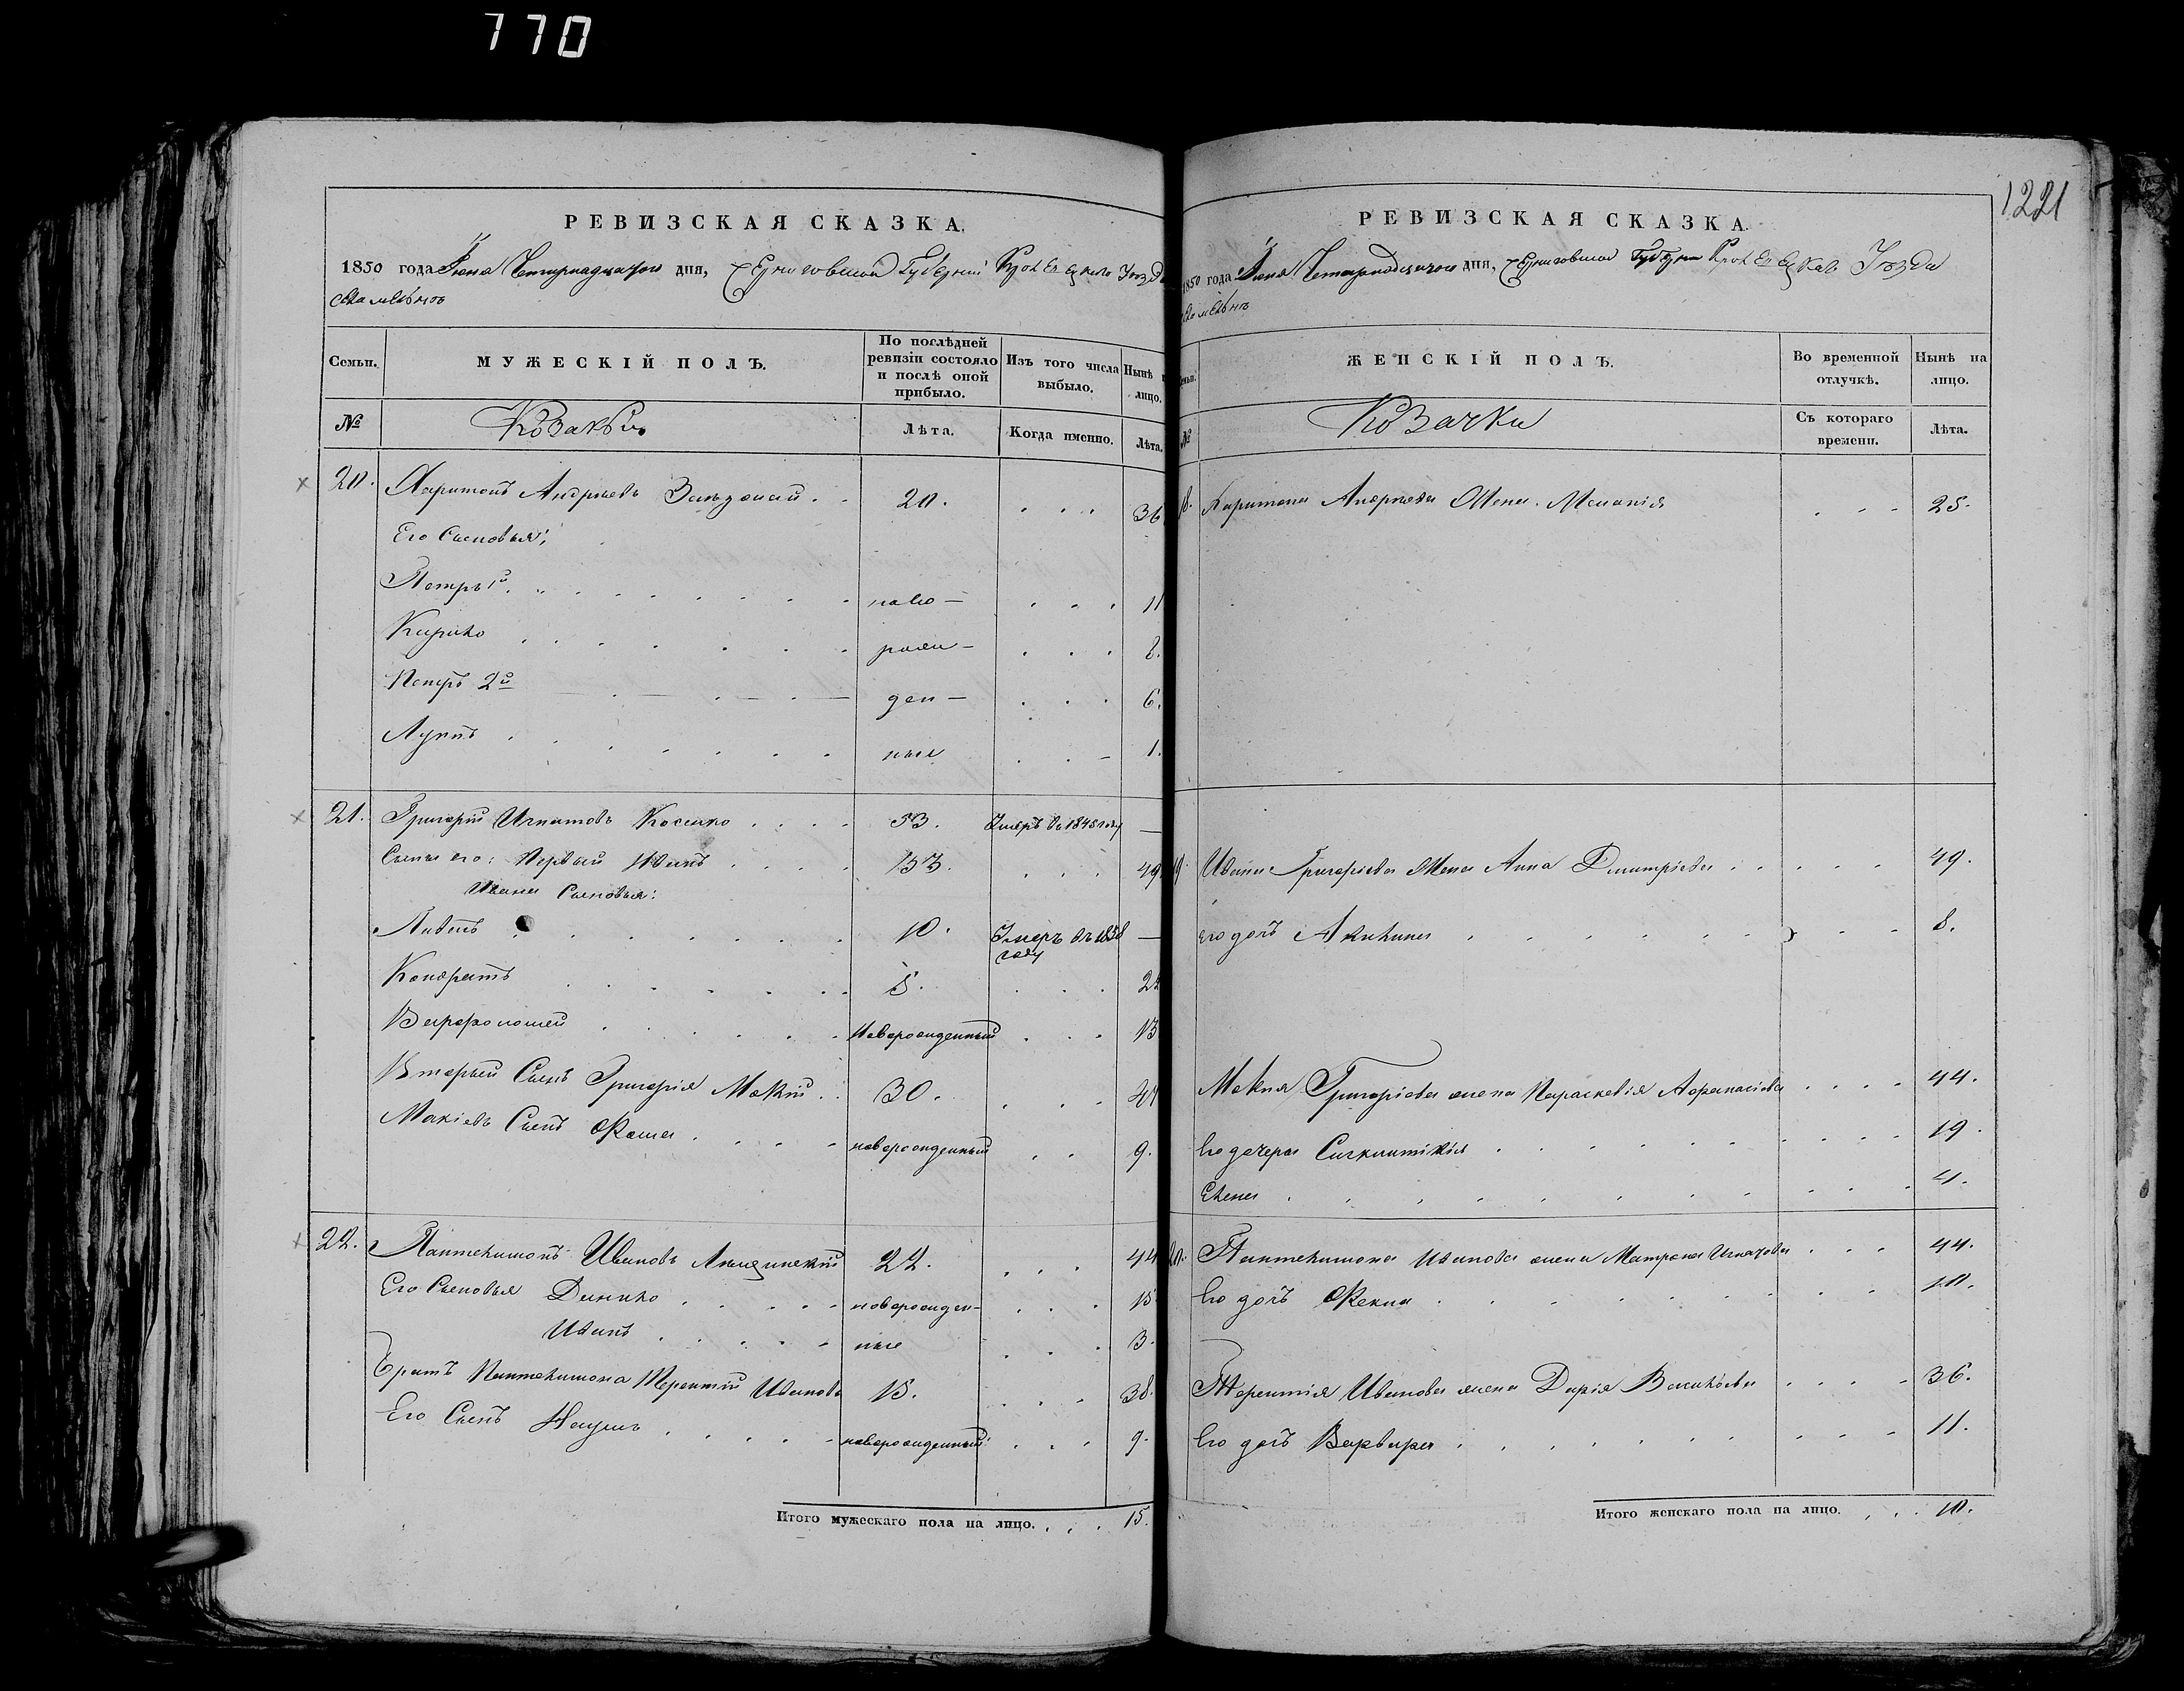 770
1221
РЕВИЗСКАЯ СКАЗКА.
1850 года Іюня Четырнадцатого дня, Черниговской Губерніи Кролевецкаго Уѣзда
Семьи.
МУЖЕСКІЙ ПОЛЪ.
По послѣдней ревизіи состояло и послѣ оной прибыло.
Изъ того числа выбыло.
Нынѣ на лицо.
№
Козаки
Лѣта.
Когда именно.
Лѣта.
20. Харитонъ Андреевъ 20. 36
Его Сыновья:
Петръ 1й ново — 11
Кирило рожи — 8.
Петръ 2й ден — 6.
Лукъ ные 1.
21. Григорій Игнатовъ Косенко 53. Умеръ въ 1845 году —
Сыны его: Первый Иванъ 33. 49
Ивана Сыновья:
10. Умеръ въ 1838 году —
Кондратъ 8. 24
Варфоломей Новорожденный 13
Вторый Сынъ Григорія Мокій 30.
Мокіевъ Сынъ Ѳома новорожденный 9.
22. Пантелимонъ Ивановъ 28. 44
Его Сыновья Данило новорожден- 15
Иванъ ные 3.
Братъ Пантелимона Терентій Ивановъ 38.
Его Сынъ Наумъ новорожденный 9.
Итого мужескаго пола на лицо. 15.
РЕВИЗСКАЯ СКАЗКА.
1850 года Іюня Четырнадцатого дня, Черниговской Губерніи Кролевецкаго Уѣзда
Семьи.
ЖЕНСКІЙ ПОЛЪ.
Во временной отлучкѣ.
Нынѣ на лицо.
№
Козачки
Съ котораго времени.
Лѣта.
Харитона Андреева Жена Меланія 25.
19. Ивана Григоріева Жена Анна Димитріева 49.
Его дочь Акилина 8.
Мокія Григоріева жена Параскевія Афанасіева 44.
Его дочери Синклитикія 19.
Елена 4.
20. Пантелимона Иванова жена Матрона Игнатова 44.
Его дочь Ѳекла 10.
Терентія Иванова жена Дарія Васильева 36.
Его дочь Варвара 11.
Итого женскаго пола на лицо. 10.